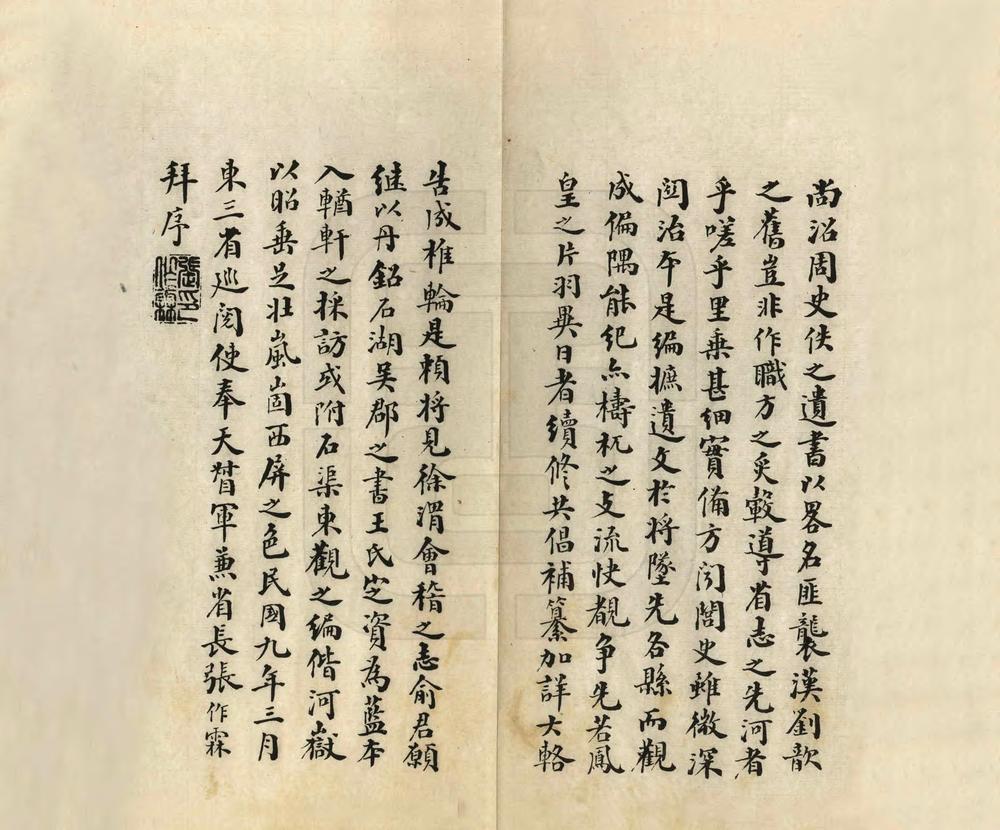 尚沿周史佚之遺書以畧名匪襲漢劉歆
之舊豈非作職方之炙轂導省志之先河者
乎嗟乎里乘甚細實備方聞閭史雖微深
関治本是編摭遺文於將墜先各縣而觀
成偏隅能紀亦檮杌之支流快覩爭先若鳳
皇之片羽異日者續修共倡補纂加詳大輅
告成椎輪是賴將見徐渭會稽之志俞君願
继以丹鉛石湖吴郡之書王氏定資為藍本
入輶軒之採訪或附石渠東觀之编偕河嶽
以昭垂足壯嵐崮西屏之色民國九年三月
東三省巡閲使奉天督軍兼省長張作霖
拜序
張作霖印